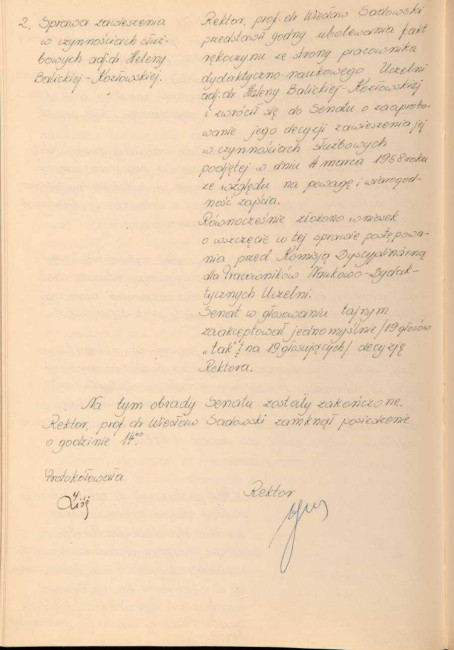 2. Sprawa zawieszenia
w czynnościach służ-
bowych adj. dr Heleny
Balickiej-Kozłowskiej.
Rektor, prof. dr Wiesław Sadowski
przedstawił godny ubolewania fakt
rękoczynu ze strony pracownika
dydaktyczno-naukowego Uczelni
adj. dr Heleny Balickiej-Kozłowskiej
i zwrócił się do Senatu o zaaprobo-
wanie jego decyzji zawieszenia jej
w czynnościach służbowych
podjętej w dniu 4 marca 1968 roku
ze względu na powagę i wiarogod-
ność zajścia.
Równocześnie złożono wniosek
o wszczęcie w tej sprawie postępowa-
nia przed Komisją Dyscyplinarną
dla Pracowników Naukowo-Dydak-
tycznych Uczelni.
Senat w głosowaniu tajnym
zaakceptował jednomyślnie /19 głosów
„tak” na 19 głosujących/ decyzję
Rektora.
Na tym obrady Senatu zostały zakończone.
Rektor, prof. dr Wiesław Sadowski zamknął posiedzenie
o godzinie 14⁰⁰.
Protokołowała
Rektor